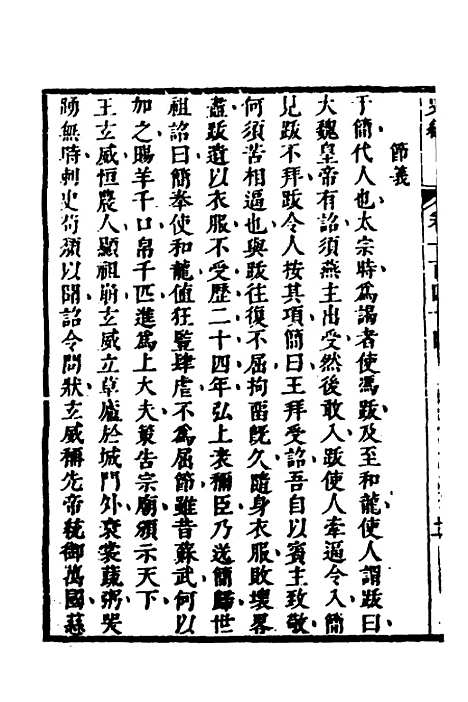 節義
于簡代人也太宗時爲謁者使馮跋及至和龍使人謂跋曰
大魏皇帝有詔須燕主出受然後敢入跋使人牽逼令入簡
見跋不拜跋令人按其項簡曰王拜受詔吾自以賓主致敬
何須苦相逼也與跋往復不屈拘畱旣久隨身衣服敗壞畧
盡跋遺以衣服不受歷二十四年弘上表稱臣乃送簡歸世
祖詔曰簡奉使和龍値狂豎肆虐不爲屈節雖昔蘇武何以
加之賜羊千口帛千匹進爲上大夫策告宗廟頒示天下
王玄威恒農人顯祖崩玄威立草廬於城門外衰裳蔬粥哭
踴無時刺史苟頹以聞詔令問狀玄威稱先帝統御萬國蒸